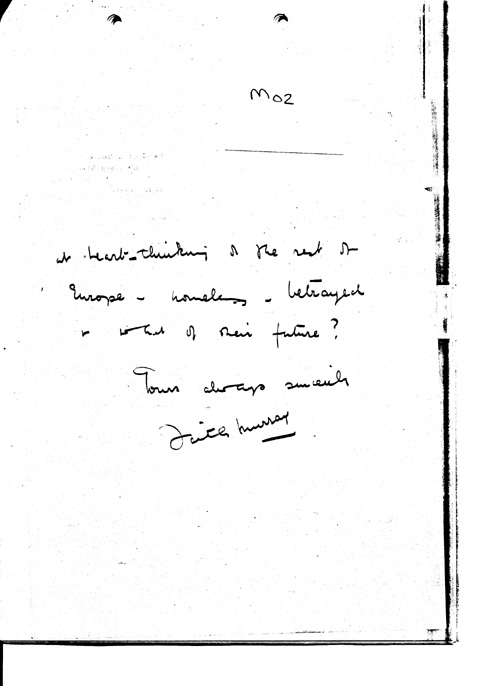 M02
at heart - thinking of the rest of
Europe - homeless - betrayed
& what of their future?
Yours always sincerely
Faith Murray